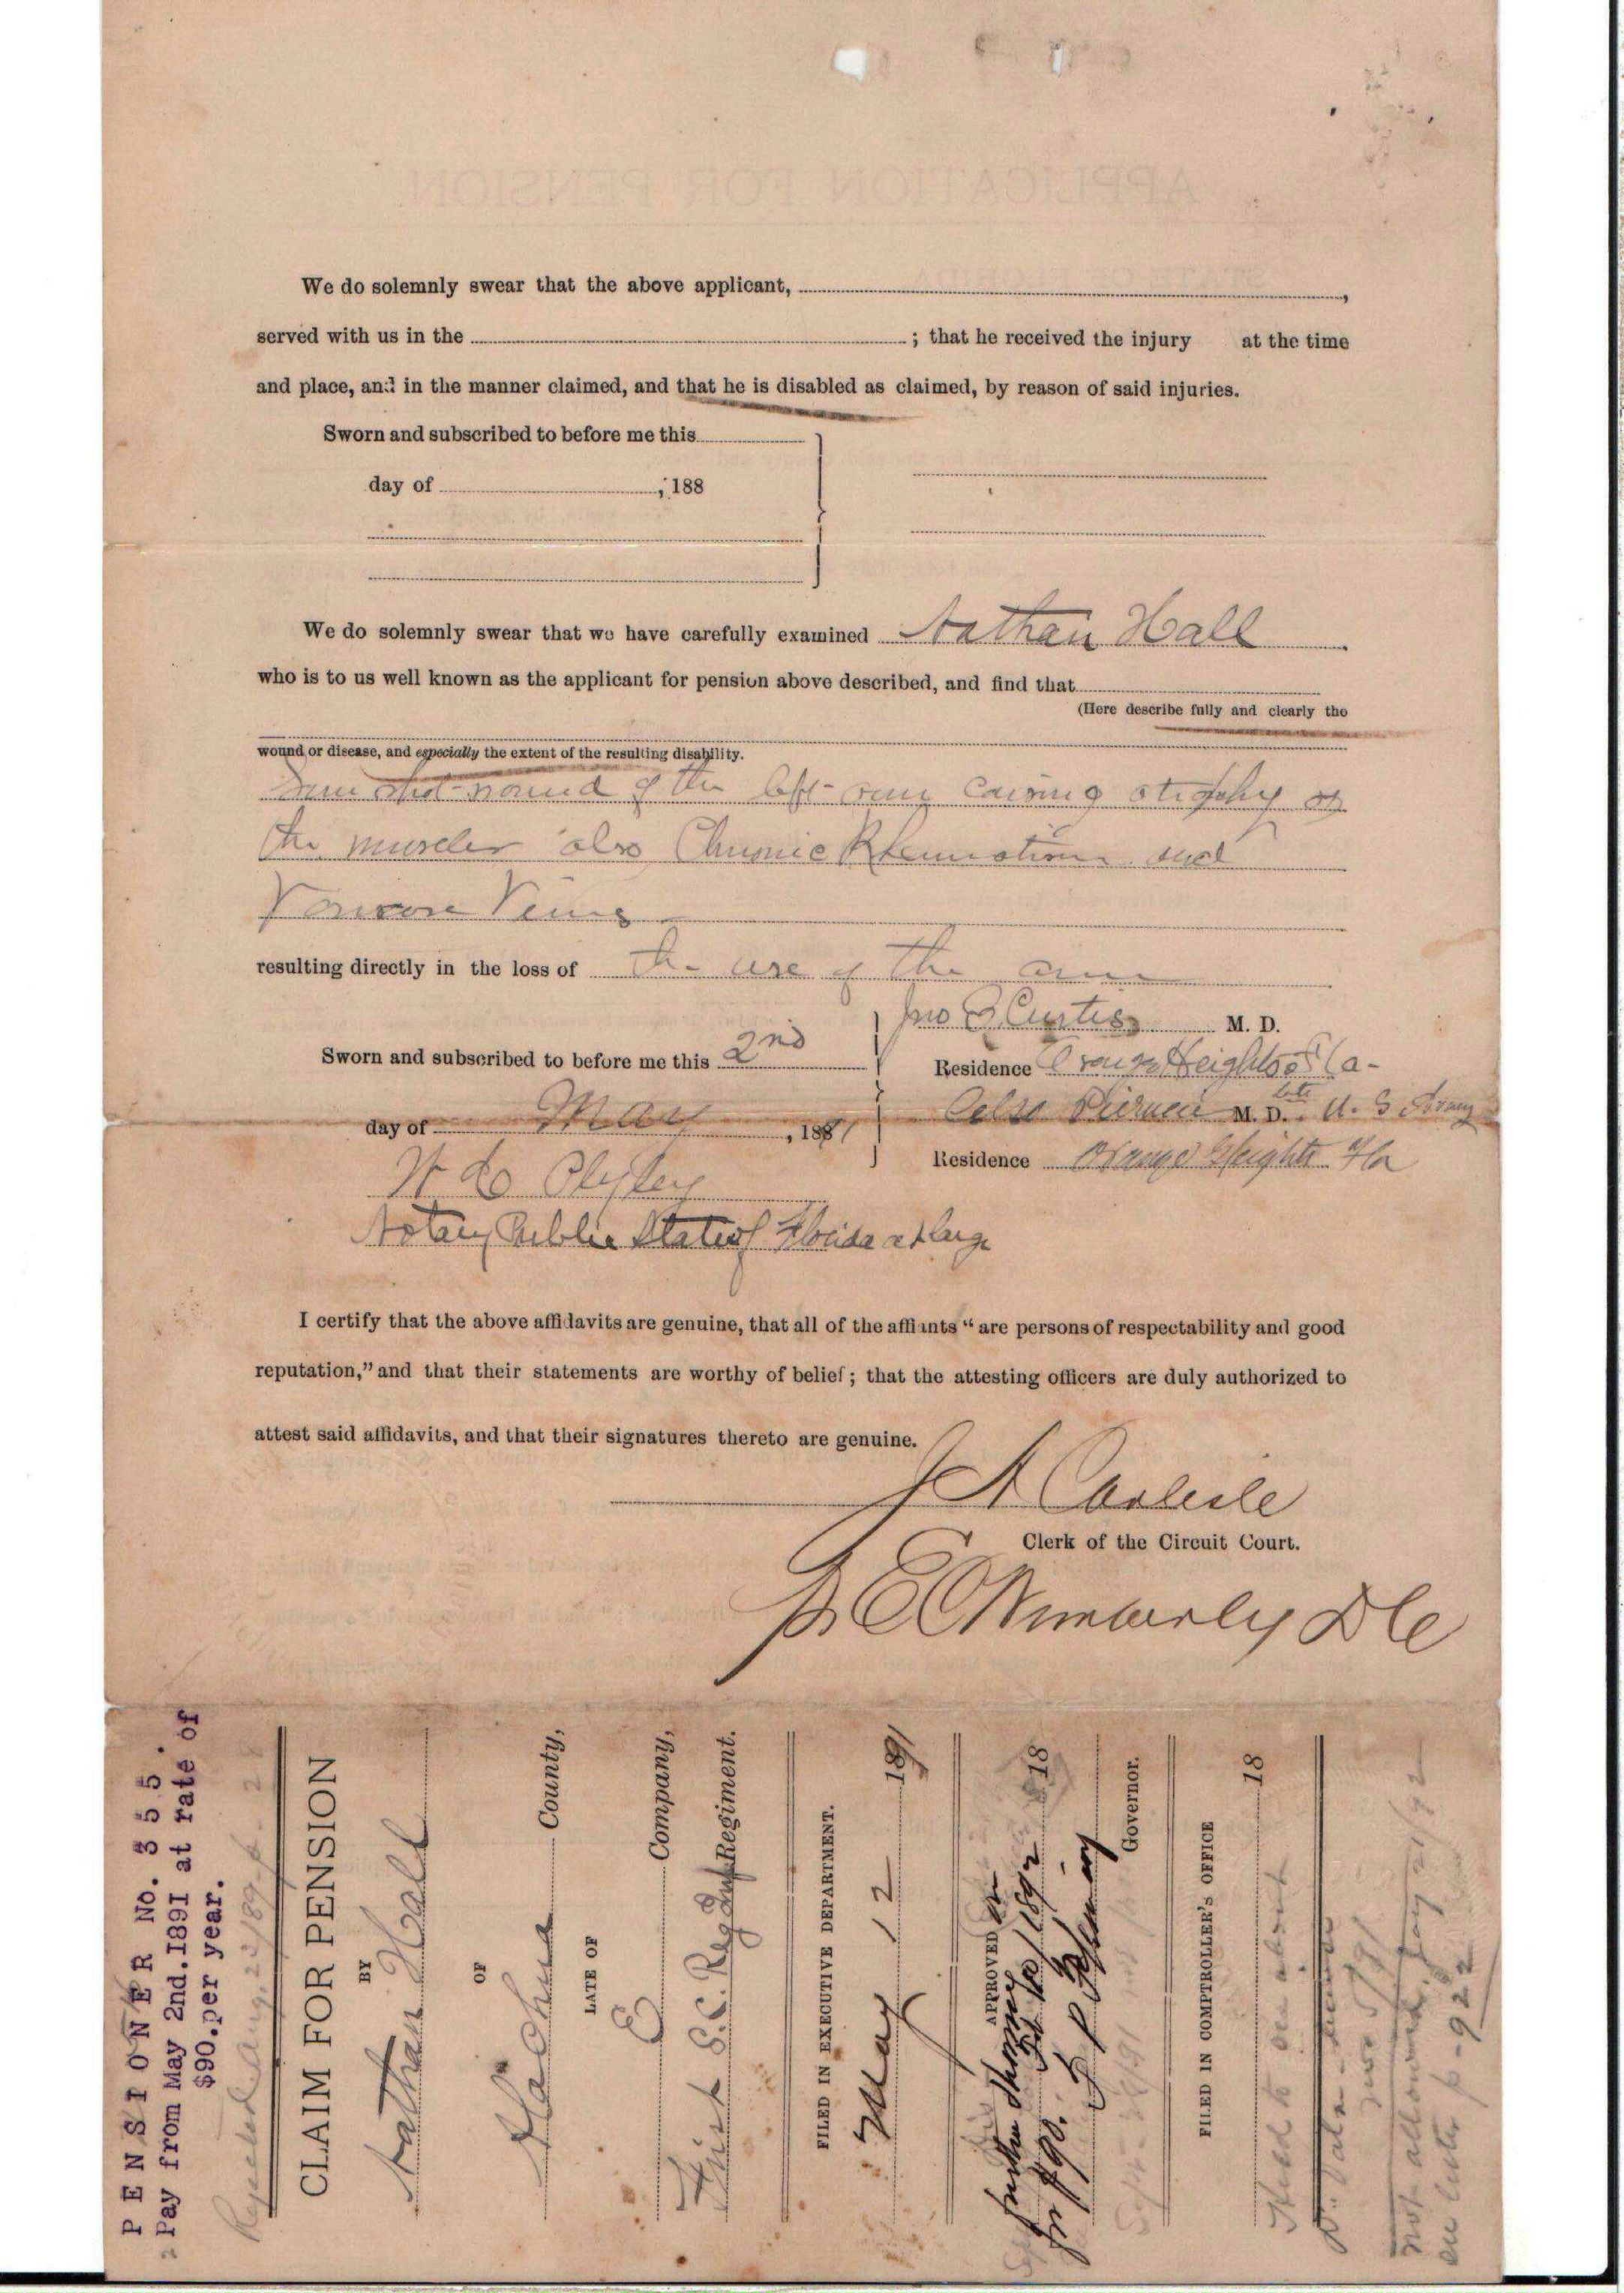 We do solemnly swear that the above applicant,
served with us in the ; that he received the injury at the time
and place, and in the manner claimed, and that he is disabled as claimed, by reason of said injuries.
Sworn and subscribed to before me this
day of , 188
We do solemnly swear that we have carefully examined Nathan Hall
who is to us well known as the applicant for pension above described, and find that
(Here describe fully and clearly the
wound or disease, and especially the extent of the resulting disability.
Gun shot wound of the left arm causing atrophy of
the muscles also Chronic Rheumatism and
Varicose Veins
resulting directly in the loss of the use of the arm
Jno Curtis M. D.
Sworn and subscribed to before me this 2nd
Residence Orange Heights Fla
Celso M. D. late U. S Army
day of May , 1891
Residence Orange Heights Fla
W
Notary Public State of Florida at Large
I certify that the above affidavits are genuine, that all of the affiants " are persons of respectability and good
reputation," and that their statements are worthy of belief ; that the attesting officers are duly authorized to
attest said affidavits, and that their signatures thereto are genuine.
J A Carlisle
Clerk of the Circuit Court.
Wimberly D C
PENSIONER No. 355.
Pay from May 2nd. 1891 at rate of
$90. per year.
Rejected Aug.
CLAIM FOR PENSION
BY
Nathan Hall
OF
Alachua County,
LATE OF
E Company,
First S.C. Reg Regiment.
FILED IN EXECUTIVE DEPARTMENT.
May 12 1891
APPROVED on
further
Feb 1892 18
for $90.
Governor.
FILED IN COMPTROLLER'S OFFICE
18
not allowed